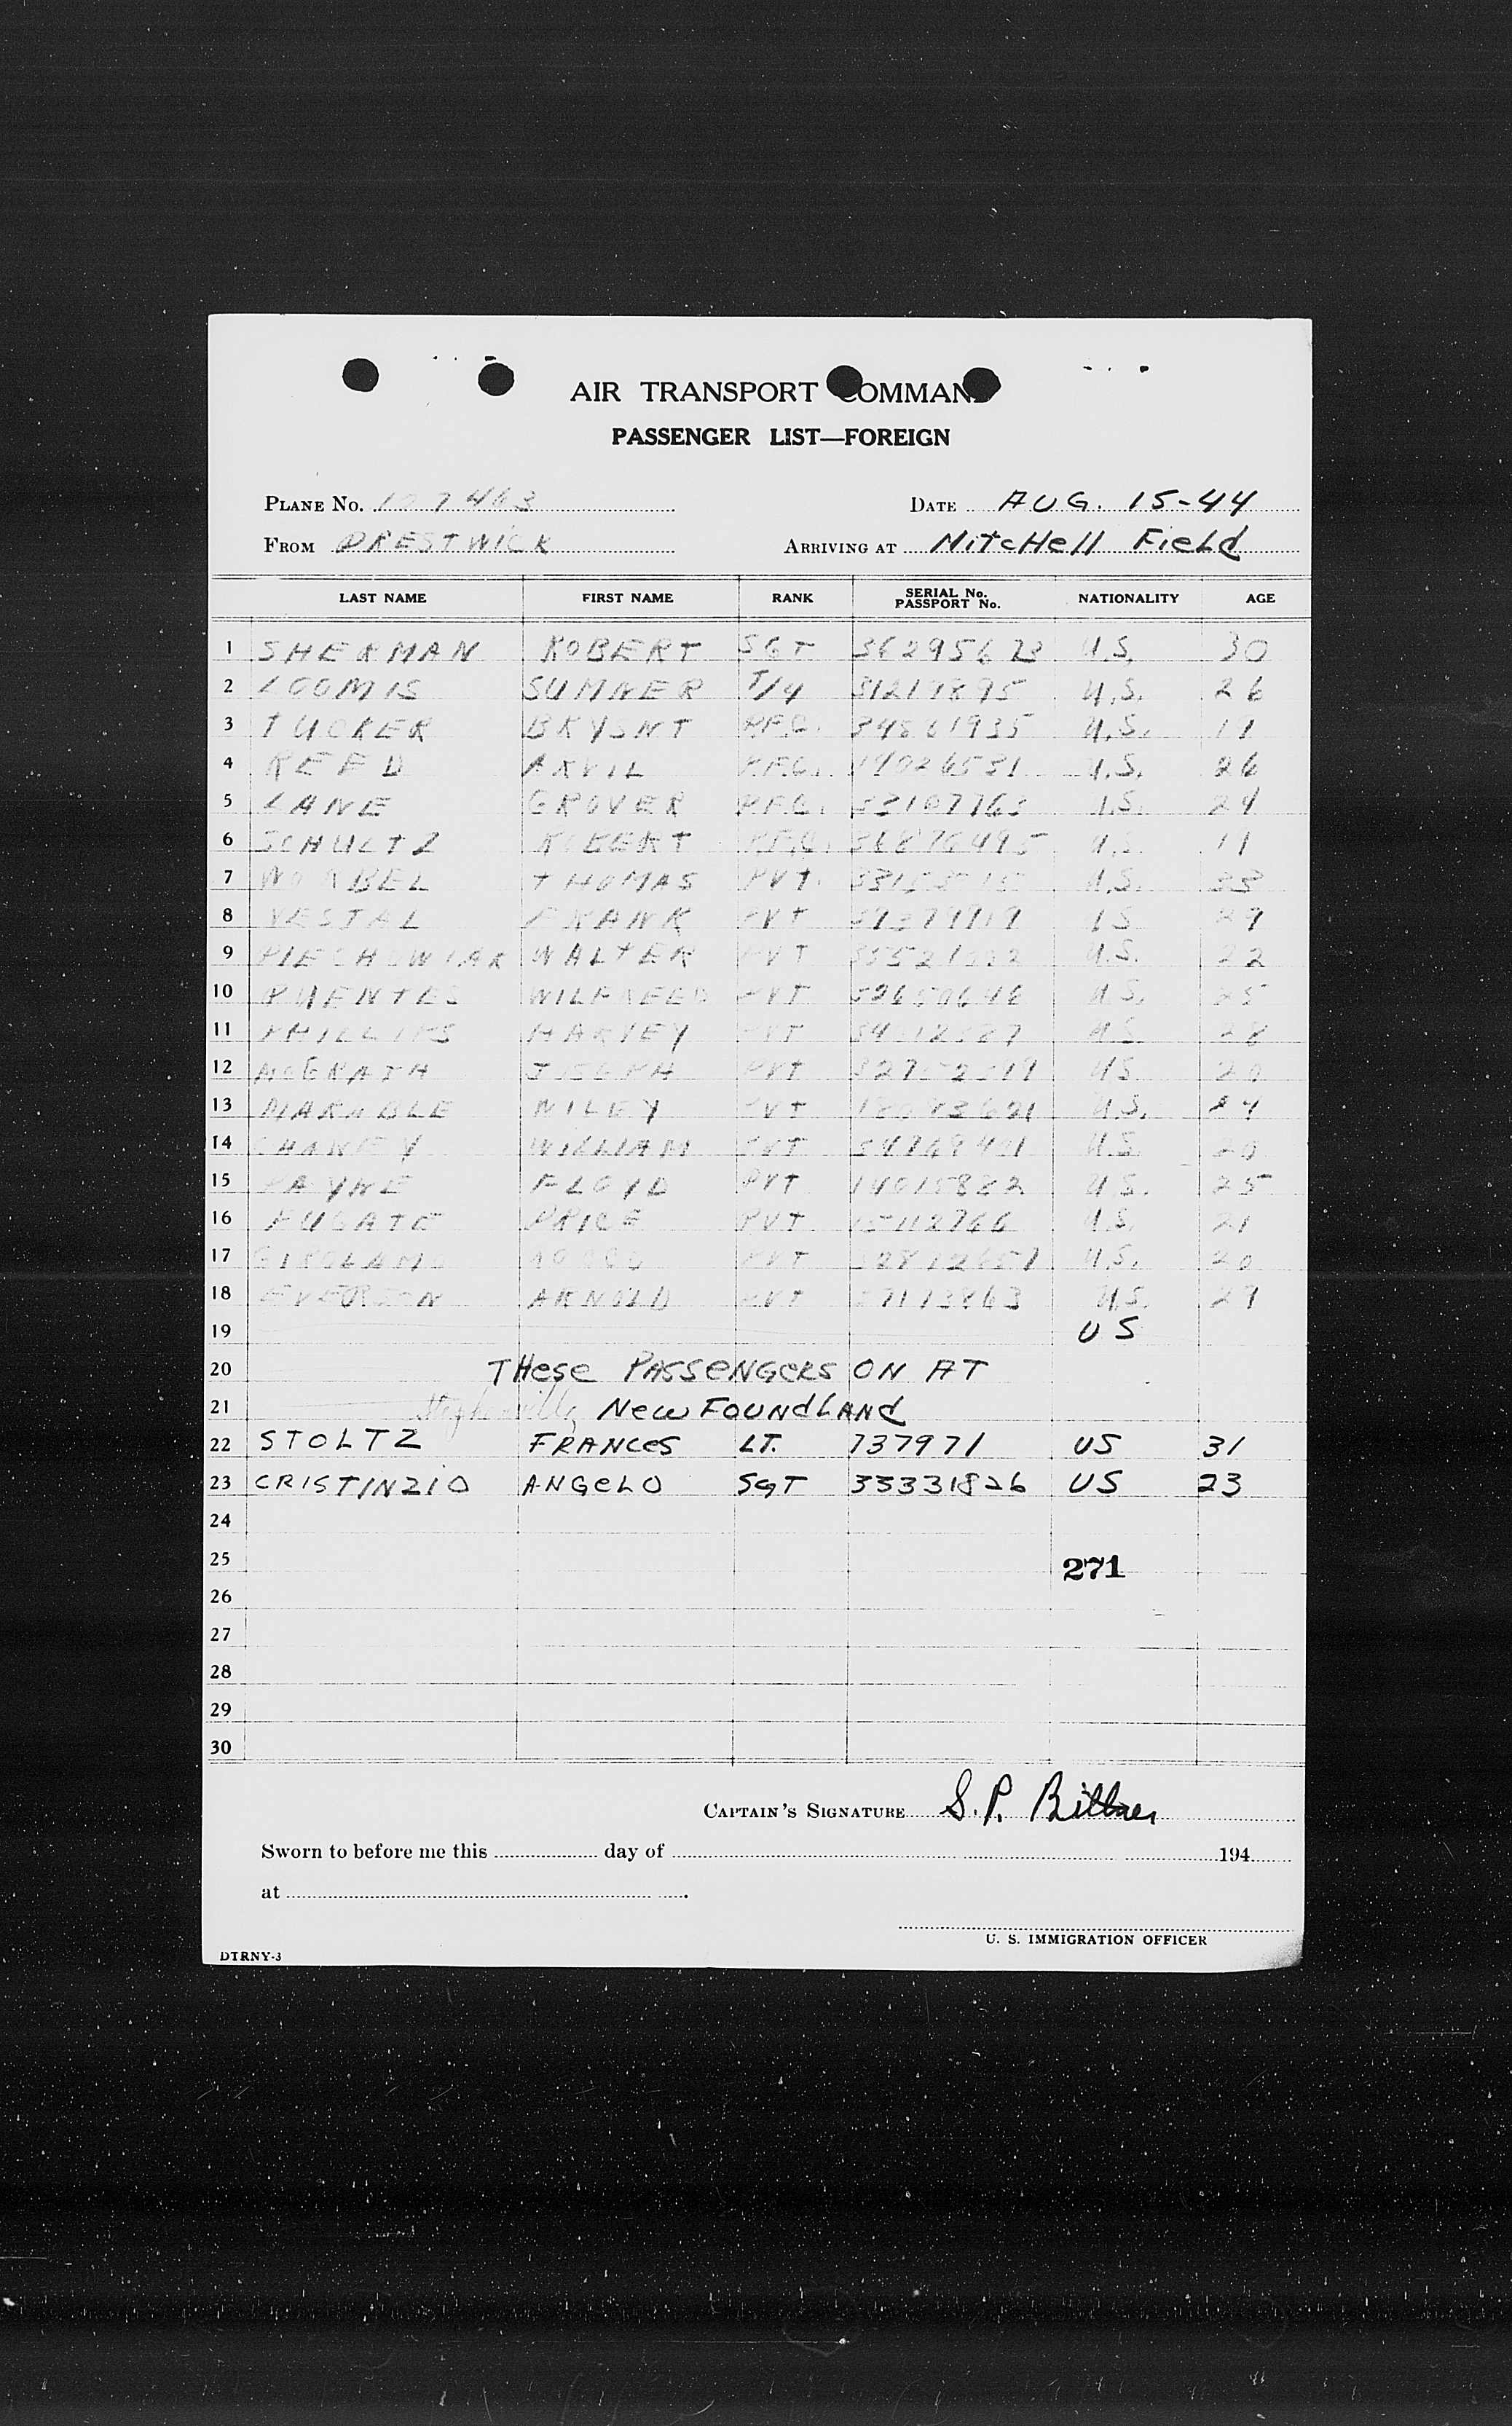 AIR TRANSPORT COMMAND
PASSENGER LIST—FOREIGN
PLANE No. 107463 DATE AUG. 15-44
FROM PRESTWICK ARRIVING AT MitcHell Field
LAST NAME FIRST NAME RANK SERIAL No. PASSPORT No. NATIONALITY AGE
1 SHERMAN ROBERT SGT U.S. 30
2 LOOMIS SUMNER T/4 31219895 U.S. 26
3 TUCKER PFC. 34801935 U.S. 19
4 REED ARVIL PFC. 19026531 U.S. 26
5 LANE GROVER PFC. 33107763 U.S. 24
6 SCHULTZ ROBERT PFC. 36876495 U.S. 19
7 THOMAS PVT. U.S. 33
8 VESTAL FRANK PVT U.S. 29
9 PIECHOWIAK WALTER PVT U.S. 22
10 PUENTES WILFREED PVT U.S. 25
11 PHILLIPS HARVEY PVT U.S. 28
12 McGRATH JOSEPH PVT U.S. 20
13 MARABLE NILEY PVT U.S. 24
14 CHANEY WILLIAM PVT U.S. 20
15 PAYNE FLOYD PVT 14015882 U.S. 25
16 FUGATE PRICE PVT 15112766 U.S. 21
17 GIROLAMO ROCCO PVT U.S. 20
18 ARNOLD PVT 37113863 U.S. 27
19 US
20 THese PASSeNGeRS ON AT
21 Stephenville NewFOUNdLANd
22 STOLTZ FRANCeS LT. 737971 US 31
23 CRISTINZIO ANGeLO SGT 33331826 US 23
24
25 271
26
27
28
29
30
CAPTAIN'S SIGNATURE S.P. Bittner
Sworn to before me this day of 194
at
U. S. IMMIGRATION OFFICER
DTRNY-3